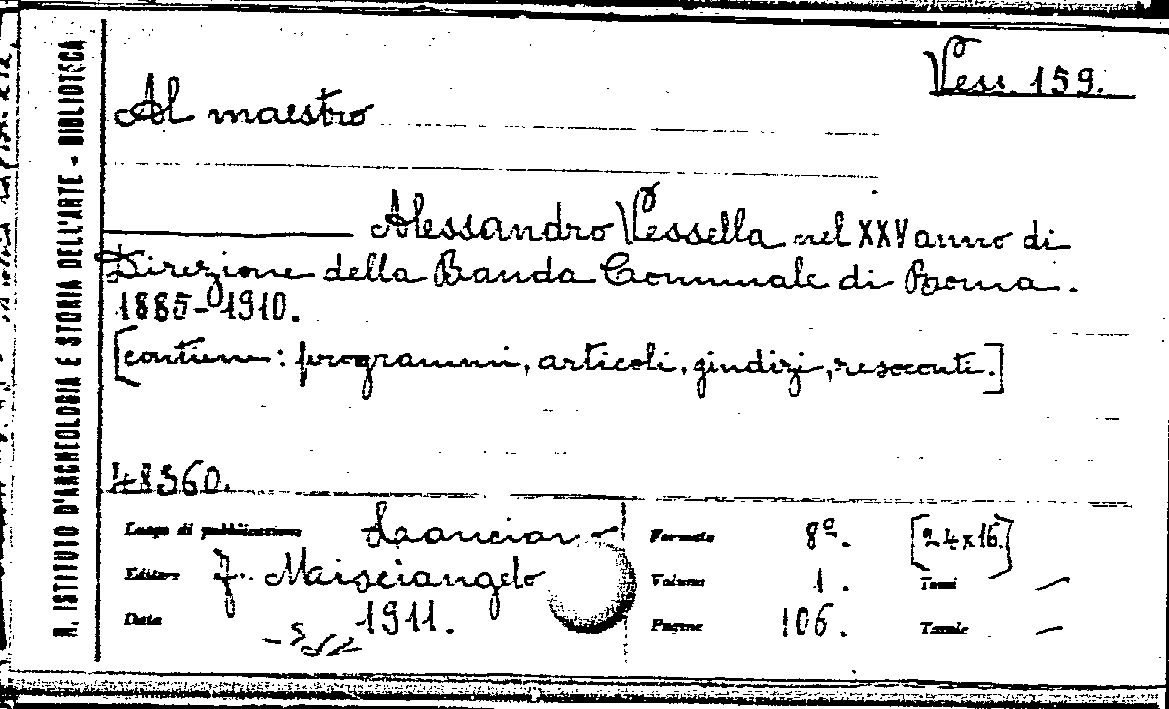 Vess. 159.
Al maestro
Alessandro Vessella nel XXV anno di
Direzione della Banda Comunale di Roma.
1885-1910.
[contiene: programmi, articoli, giudizi, resoconti.]
48360.
Luogo di pubblicazione Lanciano
Formato 8º. [24x16]
Editore Masciangelo
Volume 1. Tomi —
Data 1911.
Pagine 106. Tavole —
R. ISTITUTO D'ARCHEOLOGIA E STORIA DELL'ARTE - BIBLIOTECA